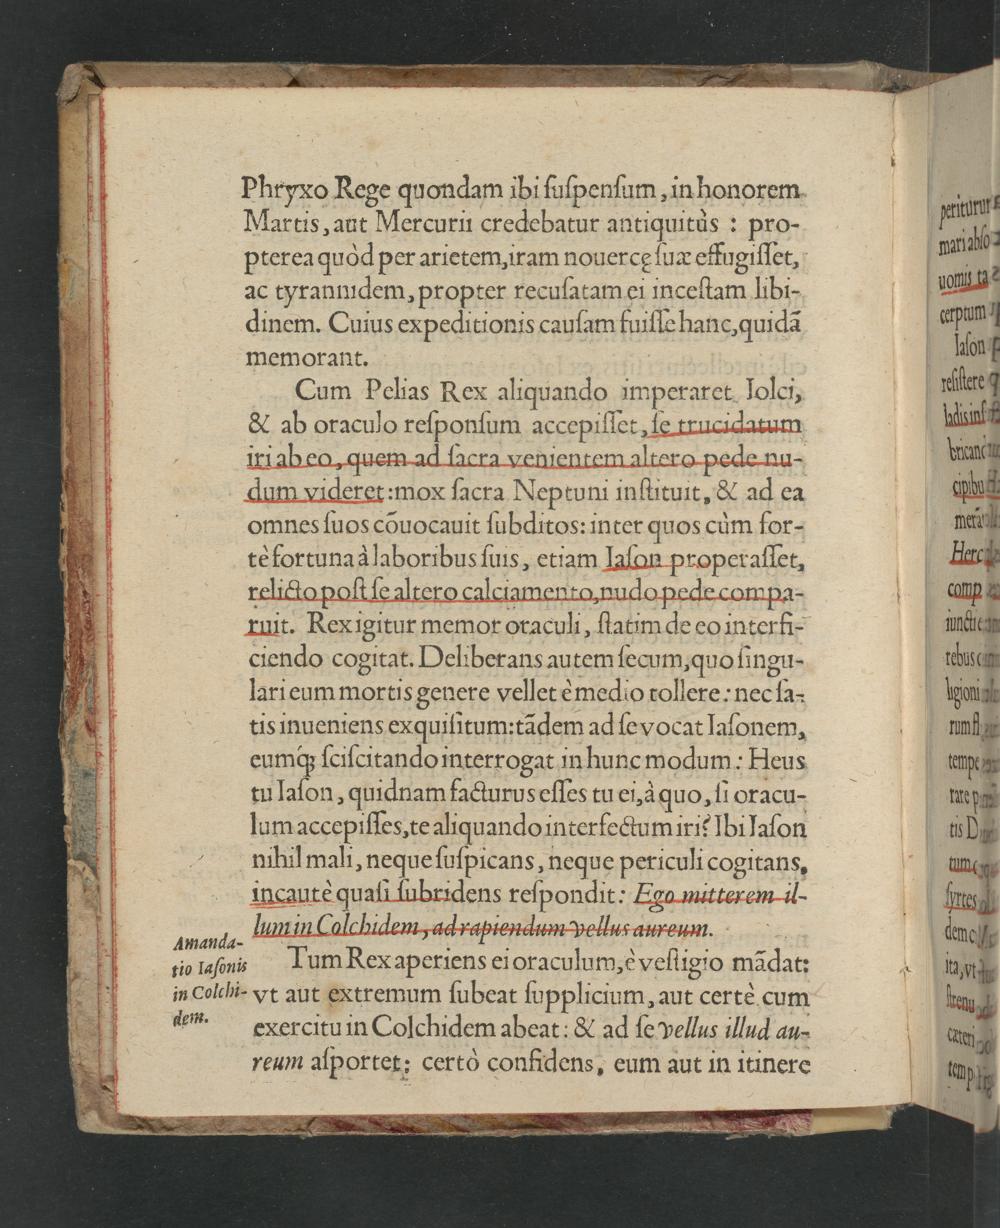 Phryxo Rege quondam ibi ſuſpenſum, in honorem
Martis, aut Mercurii credebatur antiquitùs : pro-
pterea quòd per arietem, iram nouercę ſuæ effugiſſet,
ac tyrannidem, propter recuſatam ei inceſtam libi-
dinem. Cuius expeditionis cauſam fuiſſe hanc, quidā
memorant.
Cum Pelias Rex aliquando imperaret Iolci,
& ab oraculo reſponſum accepiſſet, ſe trucidatum
iri ab eo, quem ad ſacra venientem altero pede nu-
dum videret : mox ſacra Neptuni inſtituit, & ad ea
omnes ſuos cōuocauit ſubditos: inter quos cùm for-
tè fortuna à laboribus ſuis, etiam Iaſon properaſſet,
relicto poſt ſe altero calciamento, nudo pede compa-
ruit. Rex igitur memor oraculi, ſtatim de eo interfi-
ciendo cogitat. Deliberans autem ſecum, quo ſingu-
lari eum mortis genere vellet è medio tollere: nec ſa-
tis inueniens exquiſitum: tādem ad ſe vocat Iaſonem,
eumq́; ſciſcitando interrogat in hunc modum: Heus
tu Iaſon, quidnam facturus eſſes tu ei, à quo, ſi oracu-
lum accepiſſes, te aliquando interfectum iri? Ibi Iaſon
nihil mali, neque ſuſpicans, neque periculi cogitans,
incautè quaſi ſubridens reſpondit: Ego mitterem il-
lum in Colchidem, ad rapiendum vellus aureum.
Amanda-
tio Iaſonis
in Colchi-
dem.
Tum Rex aperiens ei oraculum, è veſtigio mādat:
vt aut extremum ſubeat ſupplicium, aut certè cum
exercitu in Colchidem abeat: & ad ſe vellus illud au-
reum aſportet: certò confidens, eum aut in itinere
periturum
mari abſo
uomis ta
cerptum
Iaſon
reſiſtere
ladis inſ
bricanc
cipibu
merā
Herc
comp
iuncti
rebus c
ligioni
rum fl
tempe
rare p
tis D
tum
ſyrtes
demc
ita, vt
ſtrenu
cæteri
temp